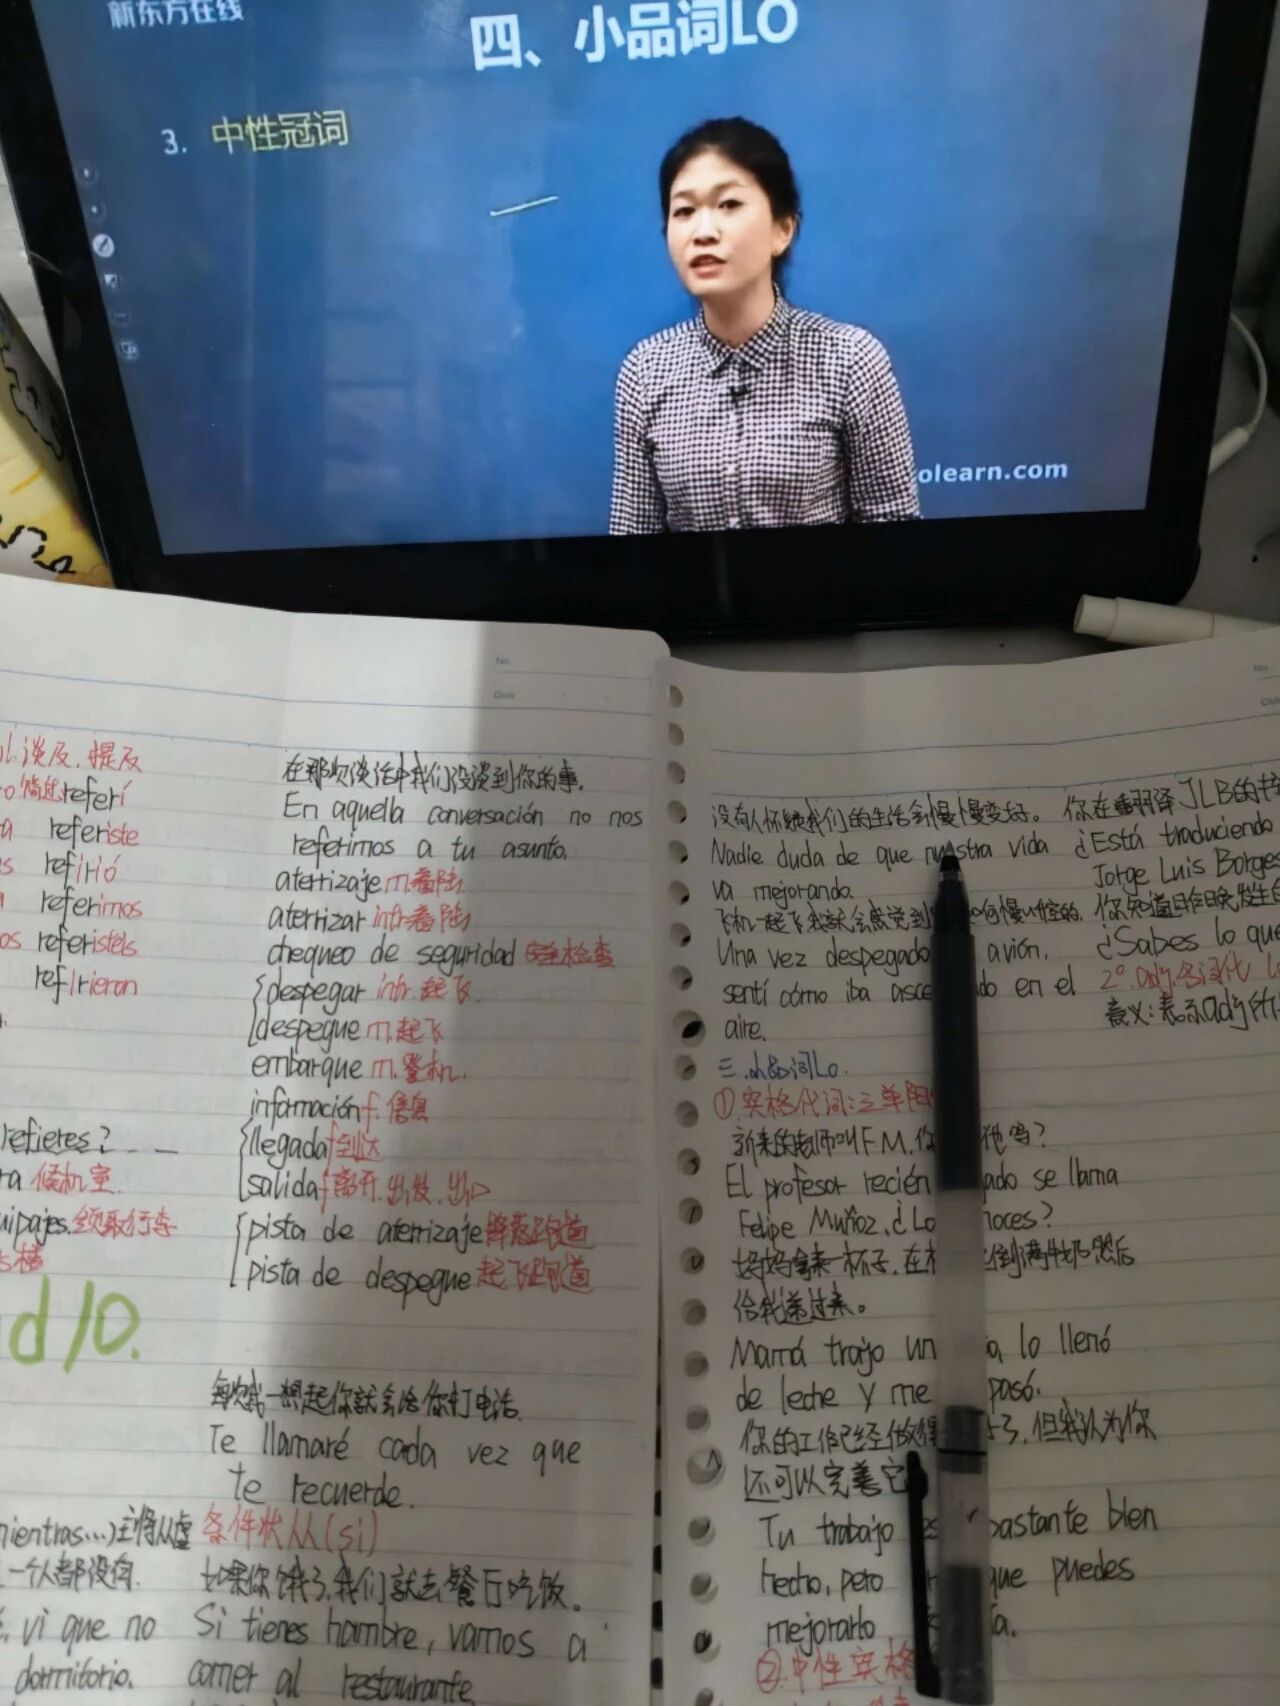 新东方在线
四、小品词LO
3. 中性冠词
olearn.com
No.
Date
谈及.提及
referí
referiste
refirió
referimos
referisteis
refirieron
refieres?
候机室
uipajes.领取行李
d lo.
mientras...)主将从虚
一个人都没有.
vi que no
dormitorio.
在那次谈话中我们没谈到你的事.
En aquella conversación no nos
referimos a tu asunto.
aterrizaje m.着陆
aterrizar intr.着陆
chequeo de seguridad 安全检查
despegar intr.起飞.
despegue m.起飞
embarque m.登机.
información f.信息
llegada f.到达
salida f.离开.出发.出口
pista de aterrizaje 降落跑道
pista de despegue 起飞跑道
每次我一想起你就会给你打电话.
Te llamaré cada vez que
te recuerde.
条件状从(si)
如果你饿了,我们就去餐厅吃饭。
Si tienes hambre, vamos a
comer al restaurante.
No.
没有人怀疑我们的生活会慢慢变好。
Nadie duda de que nuestra vida
va mejorando.
飞机一起飞我就会感觉到
Una vez despegado avión,
sentí cómo iba asce do en el
aire.
三.小品词Lo.
①.宾格代词:三单阳
新来的老师叫F.M.你 他吗?
El profesor recién ado se llama
Felipe Muñoz.¿Lo noces?
妈妈拿来一杯子.在 倒满牛奶然后
给我递过来。
Mamá trajo un a, lo llenó
de leche y me pasó.
你的工作已经做得 了,但我认为你
还可以完善它
Tu trabajo es bastante bien
hecho, pero que puedes
mejorarlo a.
②.中性宾格
你在翻译JLB的
¿Está traduciendo
Jorge Luis Borges
你知道昨晚发生
¿Sabes lo que
2°.adj.名词化
意义:表示adj